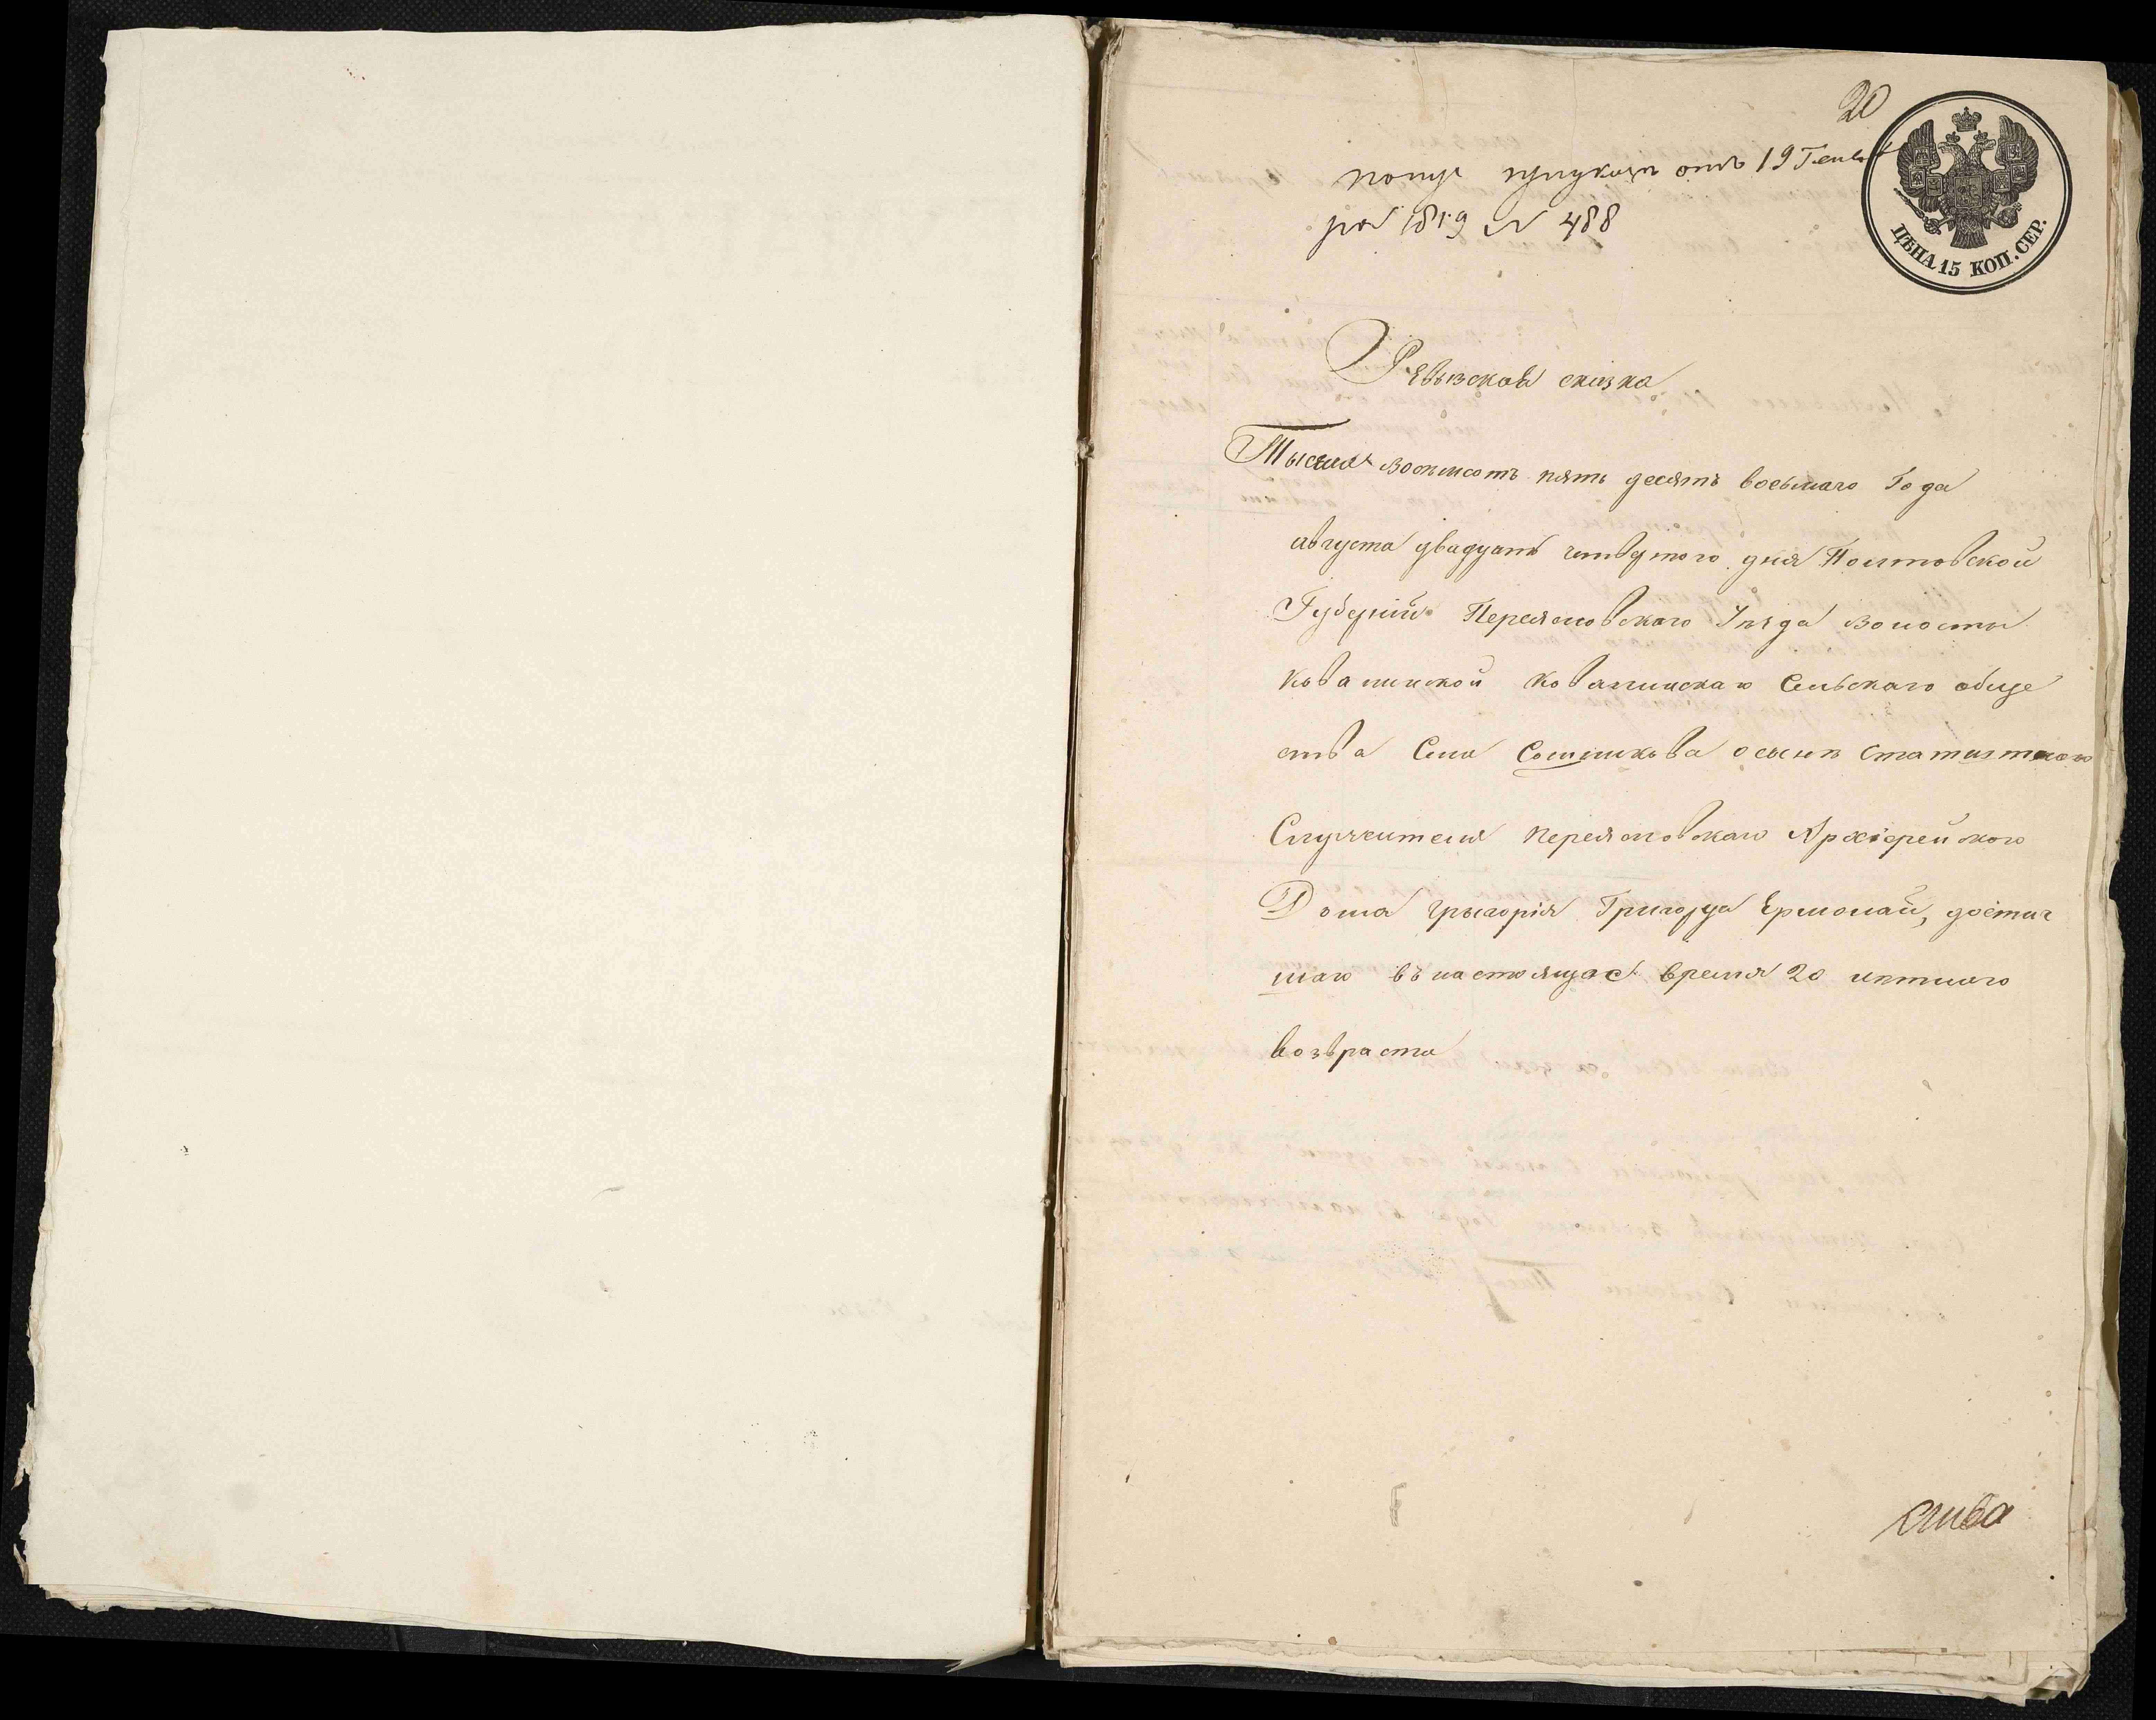 20
отъ 19 Генва
ря 1859 N 488
ЦѢНА 15 КОП. СЕР.
Ревызская сказка
Тысяча восемсотъ пять десятъ восьмаго Года
августа двадцать четвертого дня Полтовской
Губерніи Переяславскаго Уѣзда Волосты
Ковалинской Ковалинскаго Сельскаго обще
ства Села Сошникова о сынѣ Статнаго
Служителя Переяславскаго Архіерейскаго
Дома Грыгорія Григорія Ермолай, достиг
шаго въ настоящае время 20 лѣтнаго
возвраста